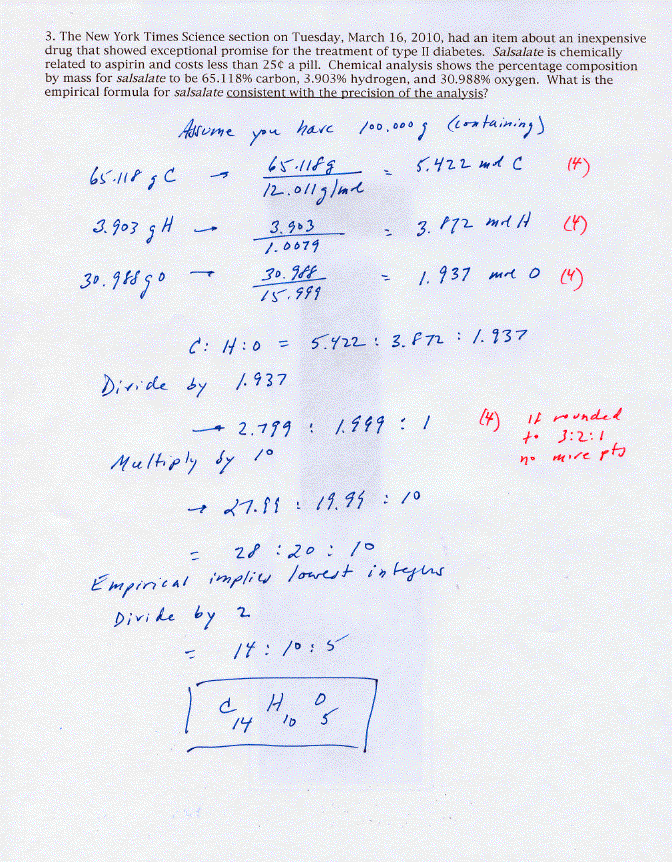 3. The New York Times Science section on Tuesday, March 16, 2010, had an item about an inexpensive
drug that showed exceptional promise for the treatment of type II diabetes. Salsalate is chemically
related to aspirin and costs less than 25¢ a pill. Chemical analysis shows the percentage composition
by mass for salsalate to be 65.118% carbon, 3.903% hydrogen, and 30.988% oxygen. What is the
empirical formula for salsalate consistent with the precision of the analysis?
Assume you have 100.000 g (containing)
65.118 g C → 65.118g / 12.011 g/mol = 5.422 mol C (4)
3.903 g H → 3.903 / 1.0079 = 3.872 mol H (4)
30.988 g O → 30.988 / 15.999 = 1.937 mol O (4)
C: H: O = 5.422 : 3.872 : 1.937
Divide by 1.937
→ 2.799 : 1.999 : 1 (4) if rounded
to 3:2:1
Multiply by 10 no more pts
→ 27.99 : 19.99 : 10
= 28 : 20 : 10
Empirical implies lowest integers
Divide by 2
= 14 : 10 : 5
C14 H10 O5